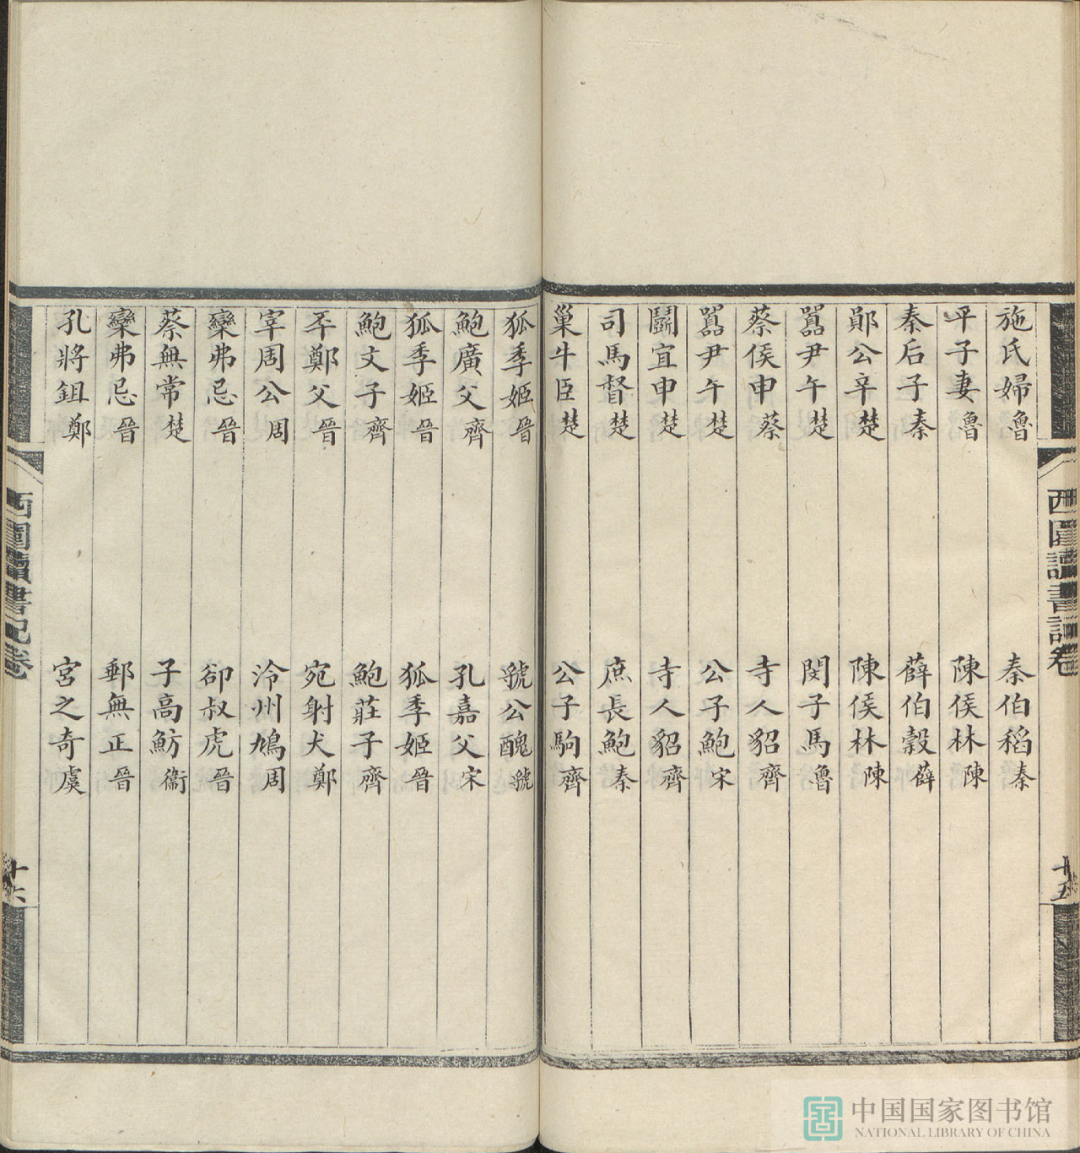 施氏婦魯 秦伯稻秦
平子妻魯 陳侯林陳
秦后子秦 薛伯穀薛
鄖公辛楚 陳侯林陳
嚚尹午楚 閔子馬魯
蔡侯申蔡 寺人貂齊
嚚尹午楚 公子鮑宋
鬬宜申楚 寺人貂齊
司馬督楚 庶長鮑秦
巢牛臣楚 公子駒齊
狐季姬晉 虢公醜虢
鮑廣父齊 孔嘉父宋
狐季姬晉 狐季姬晉
鮑文子齊 鮑莊子齊
㔻鄭父晉 宛射犬鄭
宰周公周 泠州鳩周
欒弗忌晉 郤叔虎晉
蔡無常楚 子高魴衞
欒弗忌晉 郵無正晉
孔將鉏鄭 宮之奇虞
西圃讀書記卷
十五
西圃讀書記卷
十六
中国国家图书馆
NATIONAL LIBRARY OF CHINA